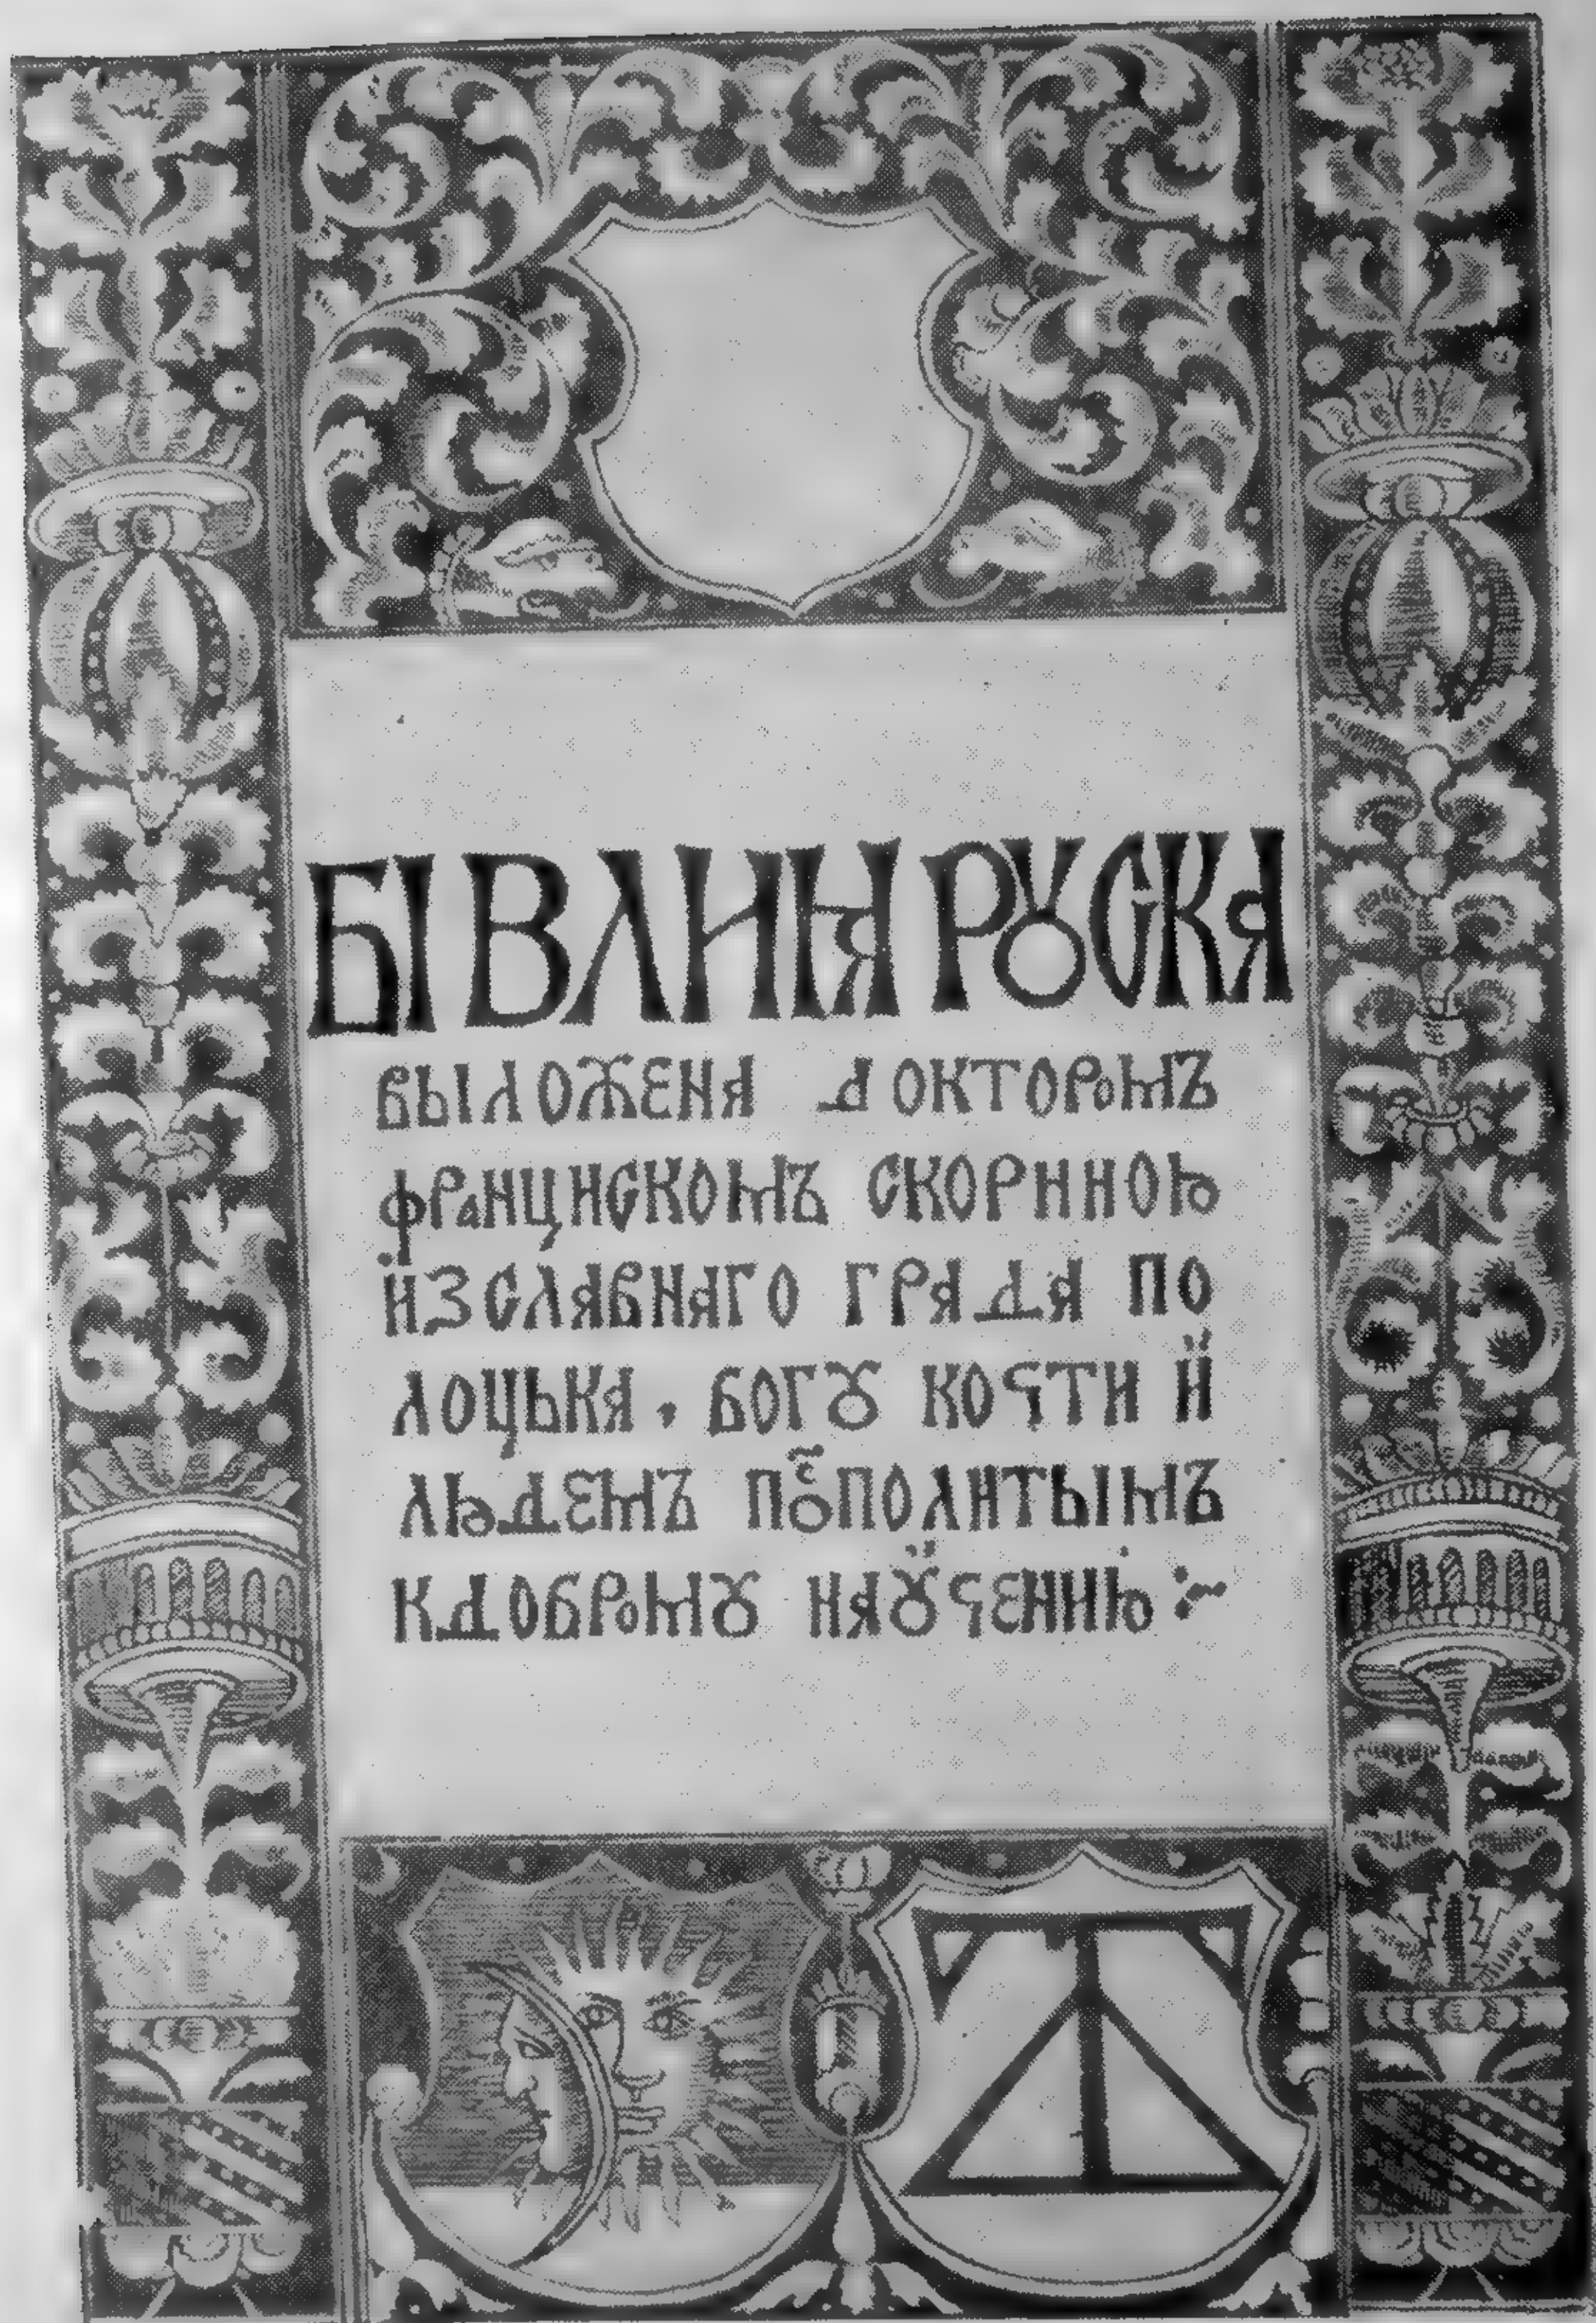 БІВЛИꙖ РꙊСКА
ВЫЛОЖЕНА ДОКТОРОМЪ
ФРАНЦИСКОМЪ СКОРИНОЮ
ИЗСЛАВНАГО ГРАДА ПО
ЛОЦЬКА . БОГꙊ КОЧТИ И
ЛЮДЕМЪ ПОⷭПОЛИТЫМЪ
КДОБРОМꙊ НАꙊЧЕНИЮ ⁘~